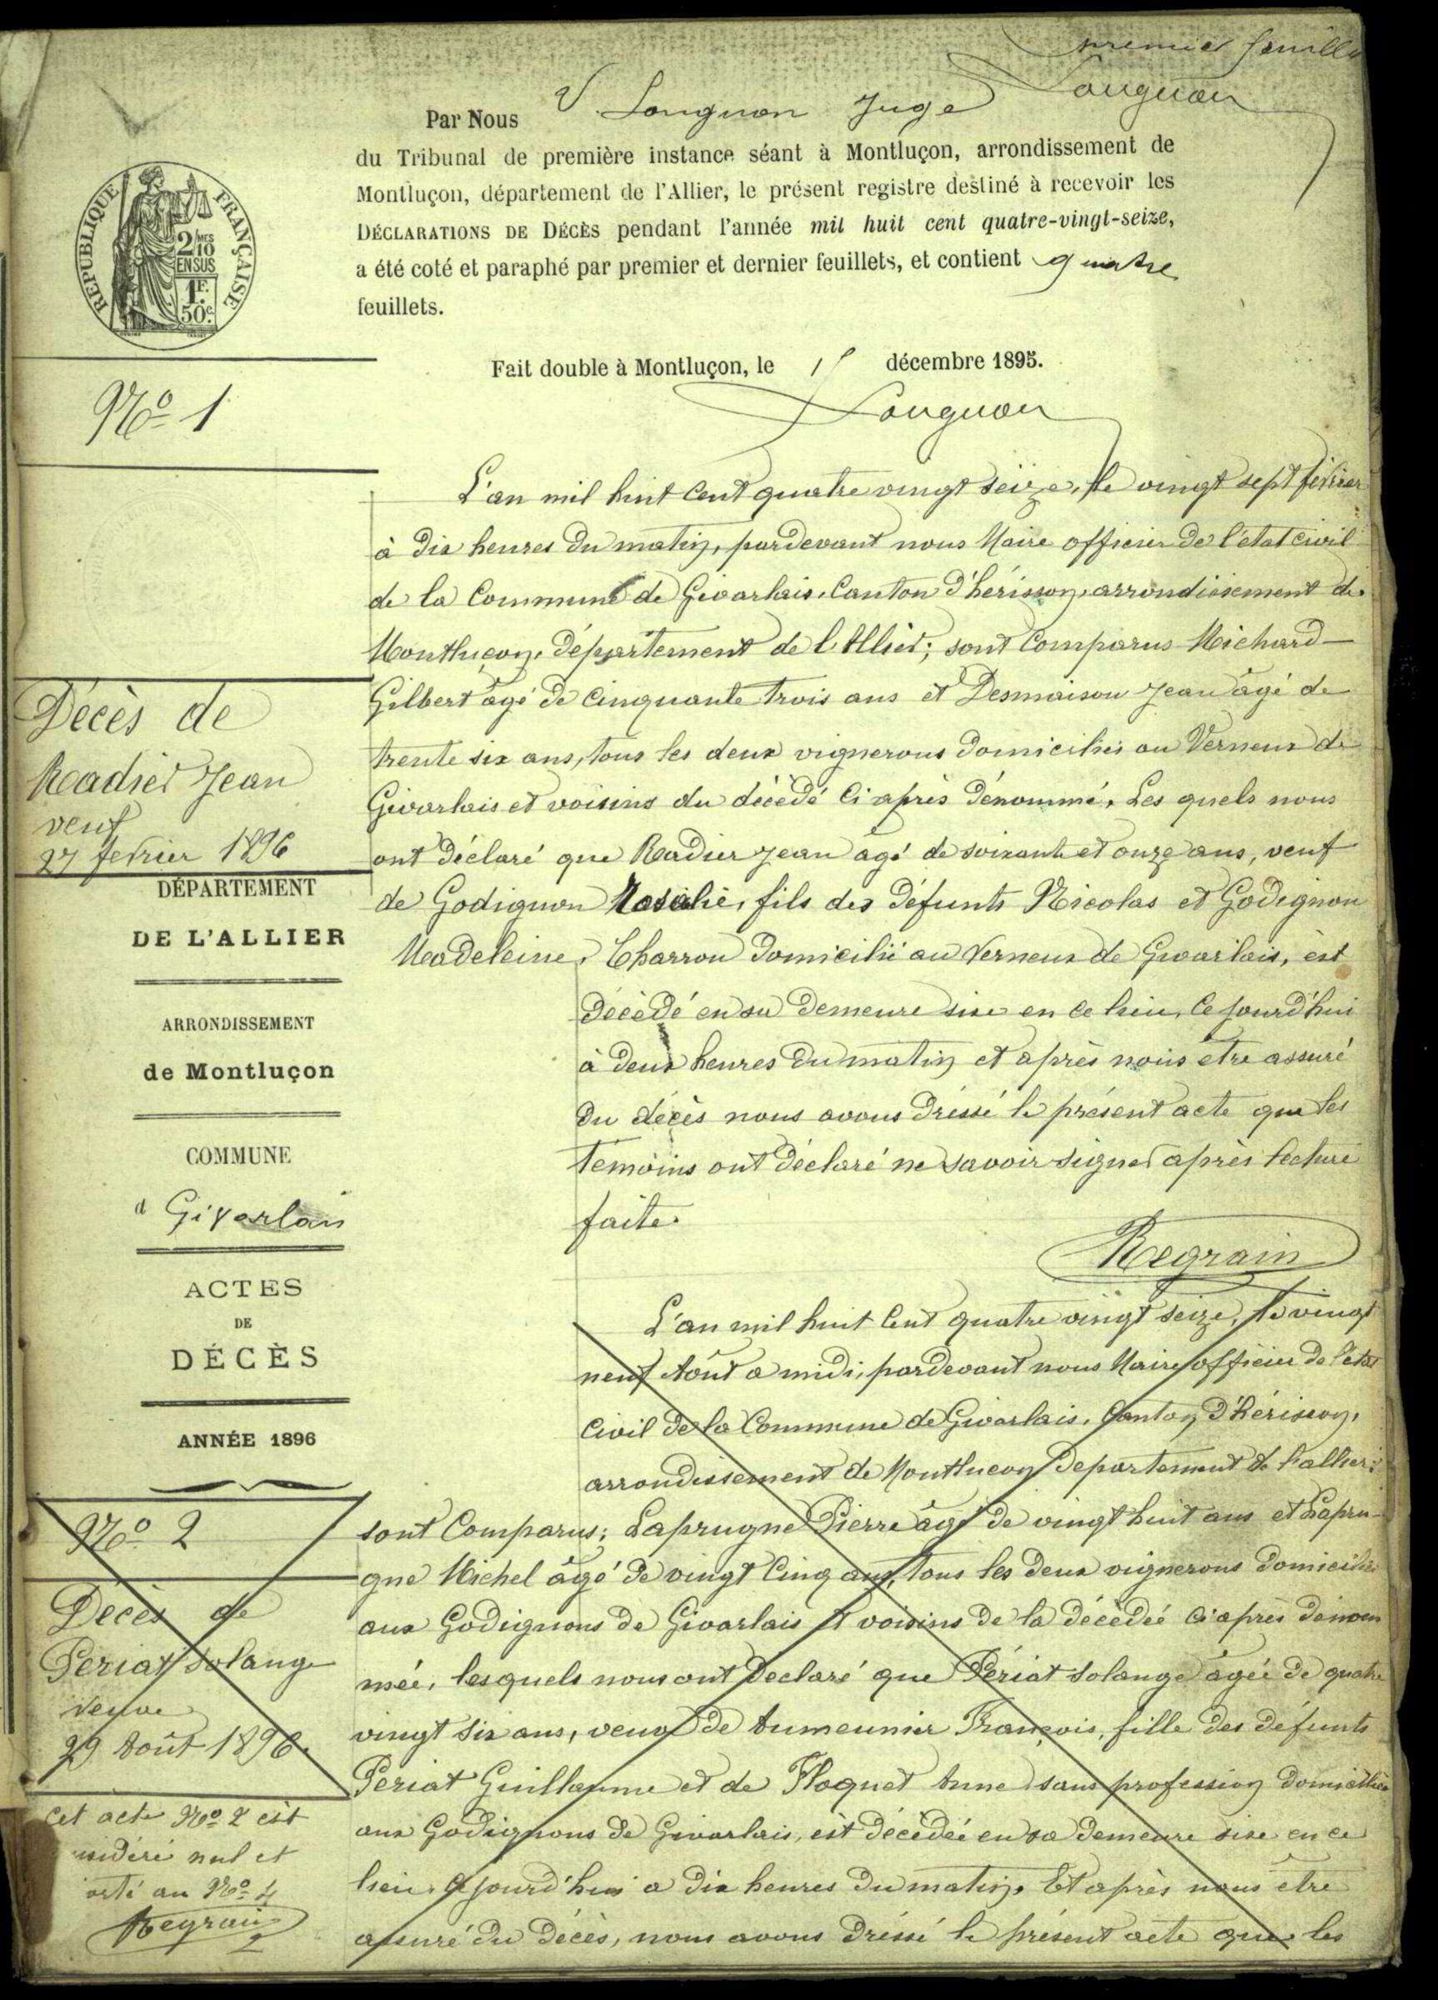 premier feuillet
Longuon
Par Nous V. Longuon Juge
du Tribunal de première instance séant à Montluçon, arrondissement de
Montluçon, département de l'Allier, le présent registre destiné à recevoir les
DÉCLARATIONS DE DÉCÈS pendant l'année mil huit cent quatre-vingt-seize,
a été coté et paraphé par premier et dernier feuillets, et contient quatre
feuillets.
Fait double à Montluçon, le décembre 1895.
Longuon
RÉPUBLIQUE FRANÇAISE
2/10 MES
EN SUS
1F.
50c.
No 1
Décès de
Radier Jean
veuf
27 fevrier 1896
L'an mil huit Cent quatre vingt seize, le vingt sept fevrier
à dix heures du matin, pardevant nous Maire officier de l'état civil
de la Commune de Givarlais, Canton d'hérisson, arrondissement de
Montluçon, département de l'Allier; sont Comparus Michard
Gilbert âgé de cinquante trois ans et Desmaison Jean âgé de
trente six ans, tous les deux vignerons domiciliés au Verneux de
Givarlais et voisins du décédé ci après dénommé, Les quels nous
ont déclaré que Radier Jean âgé de soixante et onze ans, veuf
de Godignon Rosalie, fils des défunts Nicolas et Godignon
Madeleine, Charron domicilié au Verneux de Givarlais, est
décédé en sa demeure sise en ce lieu, Ce jourd'hui
à deux heures du matin et après nous être assuré
du décès nous avons dréssé le présent acte que les
témoins ont déclaré ne savoir signer après lecture
faite.
Regrain
DÉPARTEMENT
DE L'ALLIER
ARRONDISSEMENT
de Montluçon
COMMUNE
d Givarlais
ACTES
DE
DÉCÈS
ANNÉE 1896
No 2
Décès de
Periat Solange
veuve
29 Août 1896.
cet acte No 2 est
nul et
au No 4
Regrain
L'an mil huit Cent quatre vingt seize, le vingt
neuf Août a midi, pardevant nous Maire officier de l'état
Civil de la Commune de Givarlais, Canton d'hérisson,
arrondissement de Montluçon Departement de l'allier;
sont Comparus; Laprugne Pierre âgé de vingt huit ans et Lapru-
gne Michel âgé de vingt Cinq ans, tous les deux vignerons domiciliés
aux Godignons de Givarlais et voisins de la décédée ci après dénom
mée, lesquels nous ont Declaré que Périat Solange âgée de quatre
vingt six ans, veuve de Aumeunier François, fille des défunts
Periat Guillaume et de Floquet Anne sans profession domiciliée
aux Godignons de Givarlais, est décédée en sa demeure sise en ce
lieu, Ce jourd'hui a dix heures du matin, Et après nous être
assuré du décès, nous avons dréssé le présent acte que les